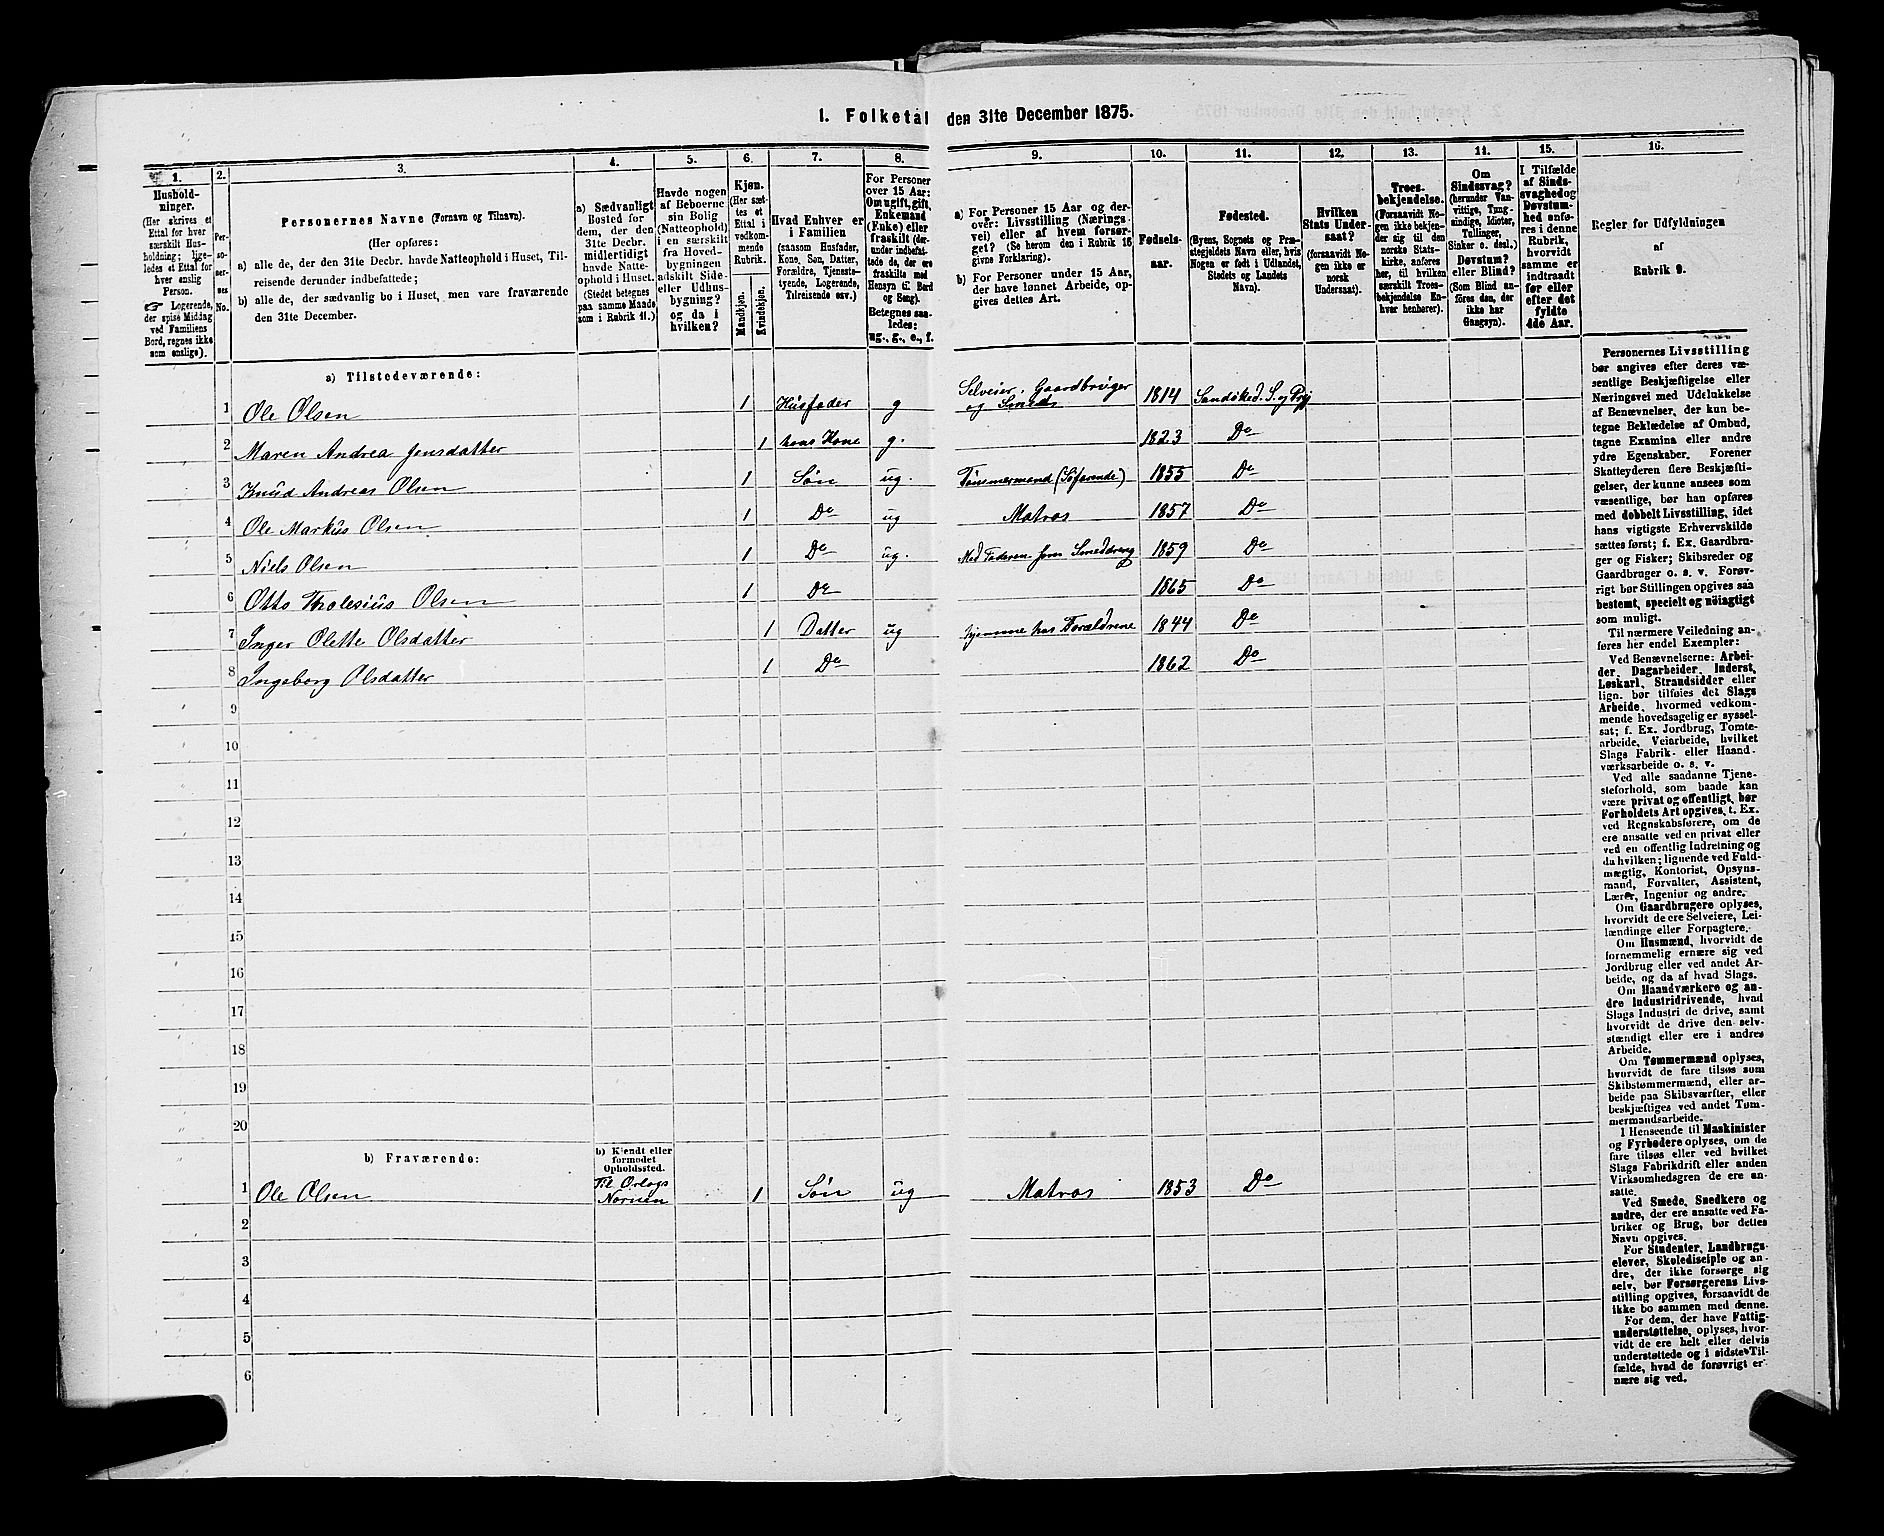 1. Folketal den 31te December 1875.
1.
Hushold-
ninger.
(Her skrives et
Ettal for hver
særskilt Hus-
holdning; lige-
ledes et Ettal for
hver enslig
Person.
Logerende,
der spise Middag
ved Familiens
Bord, regnes ikke
som enslige).
2.
Per-
so-
ner-
nes
No.
3.
Personernes Navne (Fornavn og Tilnavn).
(Her opføres:
a) alle de, der den 31te Decbr. havde Natteophold i Huset, Til-
reisende derunder indbefattede;
b) alle de, der sædvanlig bo i Huset, men vare fraværende
den 31te December.
4.
a) Sædvanligt
Bosted for
dem, der den
31te Decbr.
midlertidigt
havde Natte-
ophold i Huset.
(Stedet betegnes
paa samme Maade
som i Rubrik 11.)
5.
Havde nogen
af Beboerne
sin Bolig
(Natteophold)
i en særskilt
fra Hoved-
bygningen
adskilt Side-
eller Udhus-
bygning?
og da i
hvilken?
6.
Kjøn.
(Her sæt-
tes et
Ettal i
vedkom-
mende
Rubrik.
Mandkjøn.
Kvindekjøn.
7.
Hvad Enhver er
i Familien
(saasom Husfader,
Kone, Søn, Datter,
Forældre, Tjeneste-
tyende, Logerende,
Tilreisende osv.)
8.
For Personer
over 15 Aar:
Om ugift, gift,
Enkemand
(Enke) eller
fraskilt (der-
under indbefat-
tede de, der ere
fraskilte med
Hensyn til Bord
og Seng).
Betegnes saa-
ledes:
ug., g., e., f.
9.
a) For Personer 15 Aar og der-
over: Livsstilling (Nærings-
vei) eller af hvem forsør-
get? (Se herom den i Rubrik 16
givne Forklaring).
b) For Personer under 15 Aar,
der have lønnet Arbeide, op-
gives dettes Art.
10.
Fødsels-
aar.
11.
Fødested.
(Byens, Sognets og Præ-
stegjeldets Navn eller, hvis
Nogen er født i Udlandet,
Stedets og Landets
Navn).
12.
Hvilken
Stats Under-
saat?
(forsaavidt No-
gen ikke er
norsk
Undersaat).
13.
Troes-
bekjendelse.
(Forsaavidt No-
gen ikke bekjen-
der sig til den
norske Stats-
kirke, anføres
her, til hvilken
særskilt Troes-
bekjendelse En-
hver henhører).
14.
Om
Sindssvag?
(herunder Van-
vittige, Tung-
sindige, Idioter,
Tullinger,
Sinker o. desl.)
Døvstum?
eller Blind?
(Som Blind an-
føres den, der
ikke har
Gangsyn).
15.
I Tilfælde
af Sinds-
svaghed og
Døvstum-
hed anfø-
res i denne
Rubrik,
hvorvidt
samme er
indtraadt
før eller
efter det
fyldte
4de Aar.
16.
Regler for Udfyldningen
af
Rubrik 9.
a) Tilstedeværende:
1 Ole Olsen 1 Husfader g Selveier, Gaardbruger og Smeds 1814 Sandøked. S. og Prgj
2 Maren Andrea Jensdatter 1 hans Kone g. 1823 Do
3 Knud Andreas Olsen 1 Søn ug. Tømmermand (Søfarende) 1855 Do
4 Ole Markus Olsen 1 Do ug Matros 1857 Do
5 Niels Olsen 1 Do ug. Med Faderen som Smeddreng 1859 Do
6 Otto Tholesius Olsen 1 Do 1865 Do
7 Inger Olette Olsdatter 1 Datter ug hjemme hos Forældrene 1844 Do
8 Ingeborg Olsdatter 1 Do 1862 Do
9
10
11
12
13
14
15
16
17
18
19
20
b) Fraværende:
b) Kjendt eller
formodet
Opholdssted.
1 Ole Olsen Til Orlogs Nornen 1 Søn ug Matros 1853 Do
2
3
4
5
6
Personernes Livsstilling
bør angives efter deres væ-
sentlige Beskjæftigelse eller
Næringsvei med Udelukkelse
af Benævnelser, der kun be-
tegne Beklædelse af Ombud,
tagne Examina eller andre
ydre Egenskaber. Forener
Skatteyderen flere Beskjæfti-
gelser, der kunne ansees som
væsentlige, bør han opføres
med dobbelt Livsstilling, idet
hans vigtigste Erhvervskilde
sættes først; f. Ex. Gaardbru-
ger og Fisker; Skibsreder og
Gaardbruger o. s. v. Forøv-
rigt bør Stillingen opgives saa
bestemt, specielt og nøiagtigt
som muligt.
Til nærmere Veiledning an-
føres her endel Exempler:
Ved Benævnelserne: Arbei-
der, Dagarbeider, Inderst,
Løskarl, Strandsidder eller
lign. bør tilføies det Slags
Arbeide, hvormed vedkom-
mende hovedsagelig er syssel-
sat; f. Ex. Jordbrug, Tomte-
arbeide, Veiarbeide, hvilket
Slags Fabrik- eller Haand-
værksarbeide o. s. v.
Ved alle saadanne Tjene-
steforhold, som baade kan
være privat og offentligt, bør
Forholdets Art opgives, t. Ex.
ved Regnskabsførere, om de
ere ansatte ved en privat eller
ved en offentlig Indretning og
da hvilken; lignende ved Fuld-
mægtig, Kontorist, Opsyns-
mand, Forvalter, Assistent,
Lærer, Ingeniør og andre.
Om Gaardbrugere oplyses,
hvorvidt de ere Selveiere, Lei-
lændinge eller Forpagtere.
Om Husmænd, hvorvidt de
fornemmelig ernære sig ved
Jordbrug eller ved andet Ar-
beide, og da af hvad Slags.
Om Haandværkere og an-
dre Industridrivende, hvad
Slags Industri de drive, samt
hvorvidt de drive den selv-
stændigt eller ere i andres
Arbeide.
Om Tømmermænd oplyses,
hvorvidt de fare tilsøs som
Skibstømmermænd, eller ar-
beide paa Skibsværfter, eller
beskjæftiges ved andet Tøm-
mermandsarbeide.
I Henseende til Maskinister
og Fyrbødere oplyses, om de
fare tilsøs eller ved hvilket
Slags Fabrikdrift eller anden
Virksomhedsgren de ere an-
satte.
Ved Smede, Snedkere og
andre, der ere ansatte ved Fa-
briker og Brug, bør dettes
Navn opgives.
For Studenter, Landbrugs-
elever, Skoledisciple og an-
dre, der ikke forsørge sig
selv, bør Forsørgerens Livs-
stilling opgives, forsaavidt de
ikke bo sammen med denne.
For dem, der have Fattig-
understøttelse, oplyses, hvor-
vidt de ere helt eller delvis
understøttede og i sidste Til-
fælde, hvad de forøvrigt er-
nære sig ved.